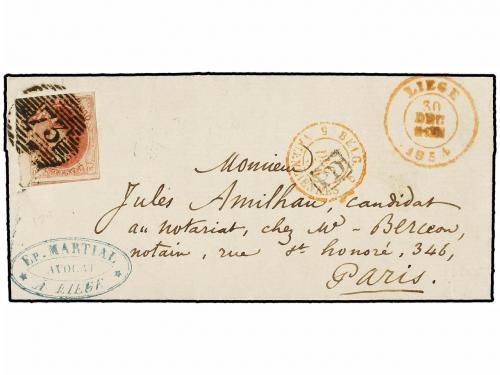 75
LIEGE
30
DEC
1854
5 BELG.
Monsieur
Jules Amilhau, candidat
au notariat, chez Mr Berceon,
notaire, rue St honoré, 346,
Paris.
EP. MARTIAL
AVOCAT
A LIEGE